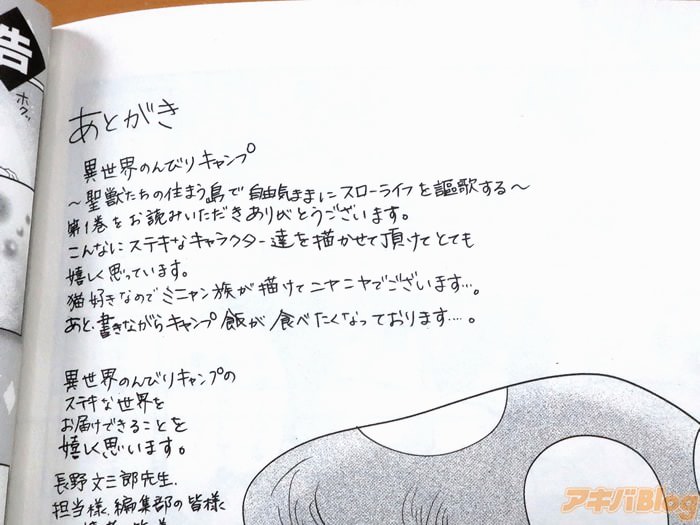 告
ホクッ
あとがき
異世界のんびりキャンプ
～聖獣たちの住まう島で自由気ままにスローライフを謳歌する～
第1巻をお読みいただきありがとうございます。
こんなにステキなキャラクター達を描かせて頂けてとても
嬉しく思っています。
猫好きなのでミニャン族が描けてニヤニヤでございます…。
あと、書きながらキャンプ飯が食べたくなっております….。
異世界のんびりキャンプの
ステキな世界を
お届けできることを
嬉しく思います。
長野文三郎先生、
担当様、編集部の皆様
アキバBlog